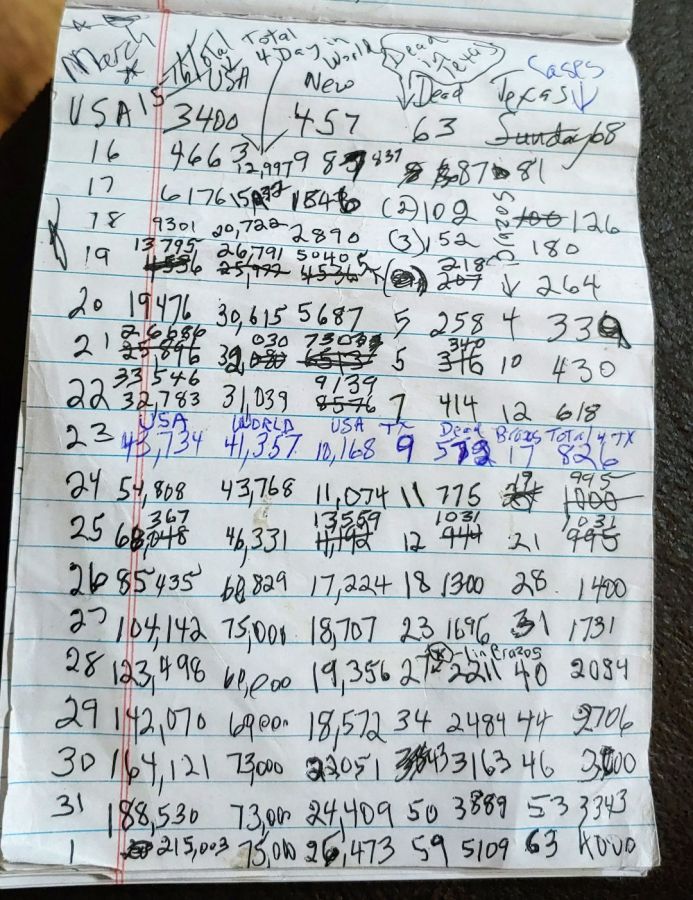 March Total USA Total 4 Day in World New Dead in Texas Dead Texas Cases
USA 15 3400 457 63 Sunday 68
16 4663 12,997 983 837 87 81
17 6176 1846 (2) 102 100 126
18 9301 20,722 2890 (3) 152 Brazos 180
13,795 26,791 5040 218
19 4536 25,922 4536 207 264
20 19476 30,615 5687 5 258 4 339
26686 030 7303 340
21 25,896 6513 5 316 10 430
33546 9139
22 32,783 31,039 8576 7 414 12 618
USA WORLD USA TX Dead Brazos Total 4 TX
23 43,734 41,357 10,168 9 17 826
24 54,808 43,768 11,074 11 775 19 995 1000
367 13559 1031 1031
25 68,048 46,331 11,192 12 944 21 995
26 85435 60,829 17,224 18 1300 28 1400
27 104,142 75,000 18,707 23 1696 31 1731
- 1 in Brazos
28 123,498 60,000 19,356 27 2211 40 2084
29 142,070 69,000 18,572 34 2484 44 2706
30 164,121 73,000 22051 43 3163 46 3000
31 188,530 73,000 24,409 50 3889 53 3343
1 215,003 75,000 26,473 59 5109 63 4000